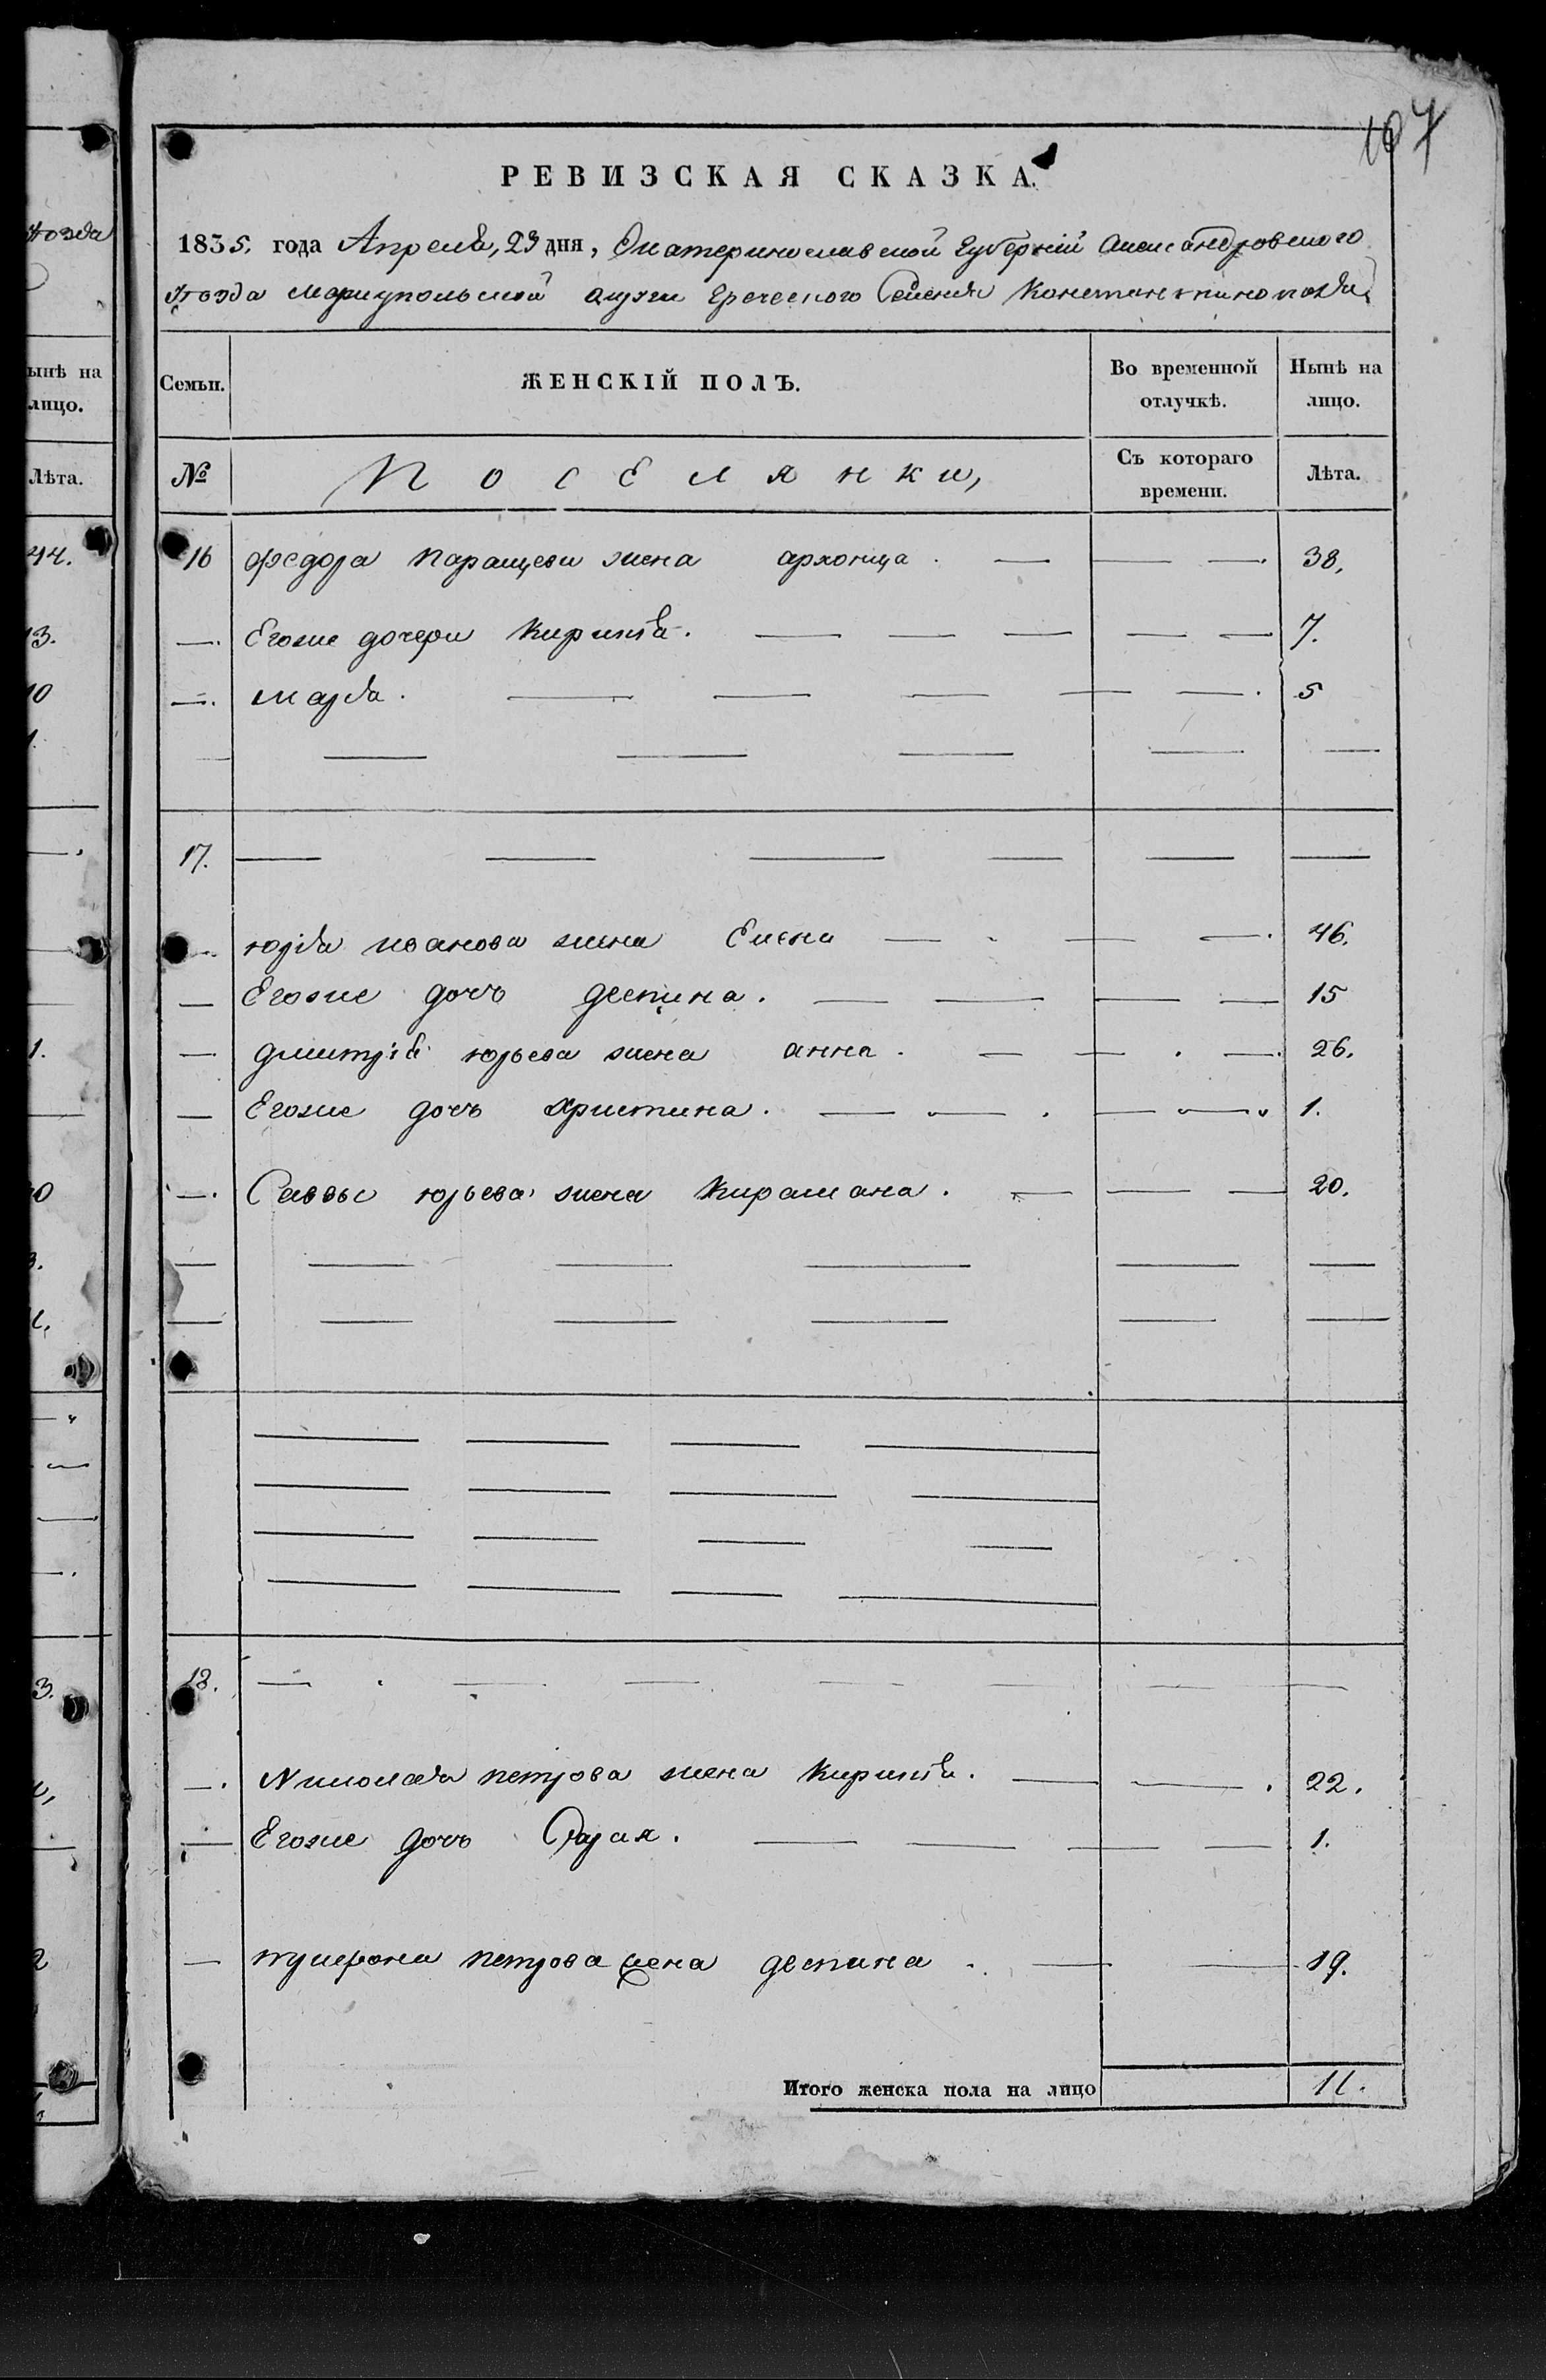 107
РЕВИЗСКАЯ СКАЗКА.
1835. года Апреля, 23 дня, Екатеринославской губернїй Александровского
уезда Мариупольской округи греческого Селения Константинополя
Семьи. ЖЕНСКІЙ ПОЛЪ. Во временной отлучкѣ. Нынѣ на лицо.
№ Поселянки, Съ котораго времени. Лѣта.
16 федора паращеви жена архонца. — — — 38.
—. Егоже дочери Кириякїа. — — — — — 7.
—. марія. — — — — — 5
— — — — — —
17. — — — — — —
— юрія иванова жена Елена — — — 46.
— Егоже дочь деспина. — — — — 15
— дмитрія юрьева жена анна. — — — 26.
— Егоже дочь христина. — — — — 1.
—. Саввы юрьева жена Кирамана. — — — 20.
— — — — — —
— — — — — —
— — — —
— — — —
— — — —
— — — —
18. — — — — — — —
—. Николая петрова жена Кирикїа. — — 22.
— Егоже дочь — — — — 1.
— петрова жена деспина — — 19.
Итого женска пола на лицо 11.
ынѣ на
лицо.
Лѣта.
44.
13.
10